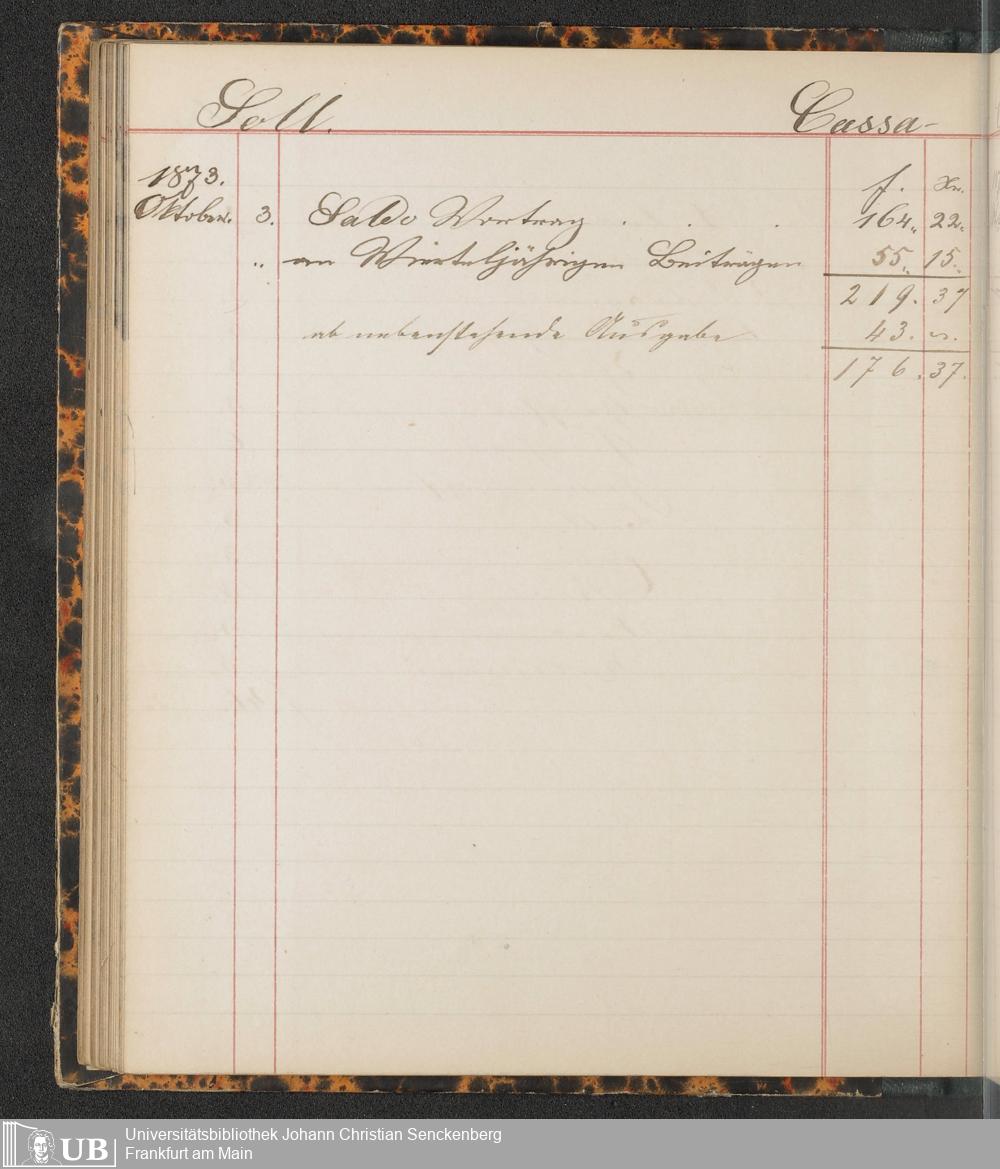 Soll. Cassa-
1873. f. Xr.
Oktober. 3. Saldo Vortrag . . . 164„ 22„
„ an Vierteljährigen Beiträgen 55„ 15„
219. 37
ab nebenstehende Ausgabe 43. „.
176. 37.
UB
Universitätsbibliothek Johann Christian Senckenberg
Frankfurt am Main